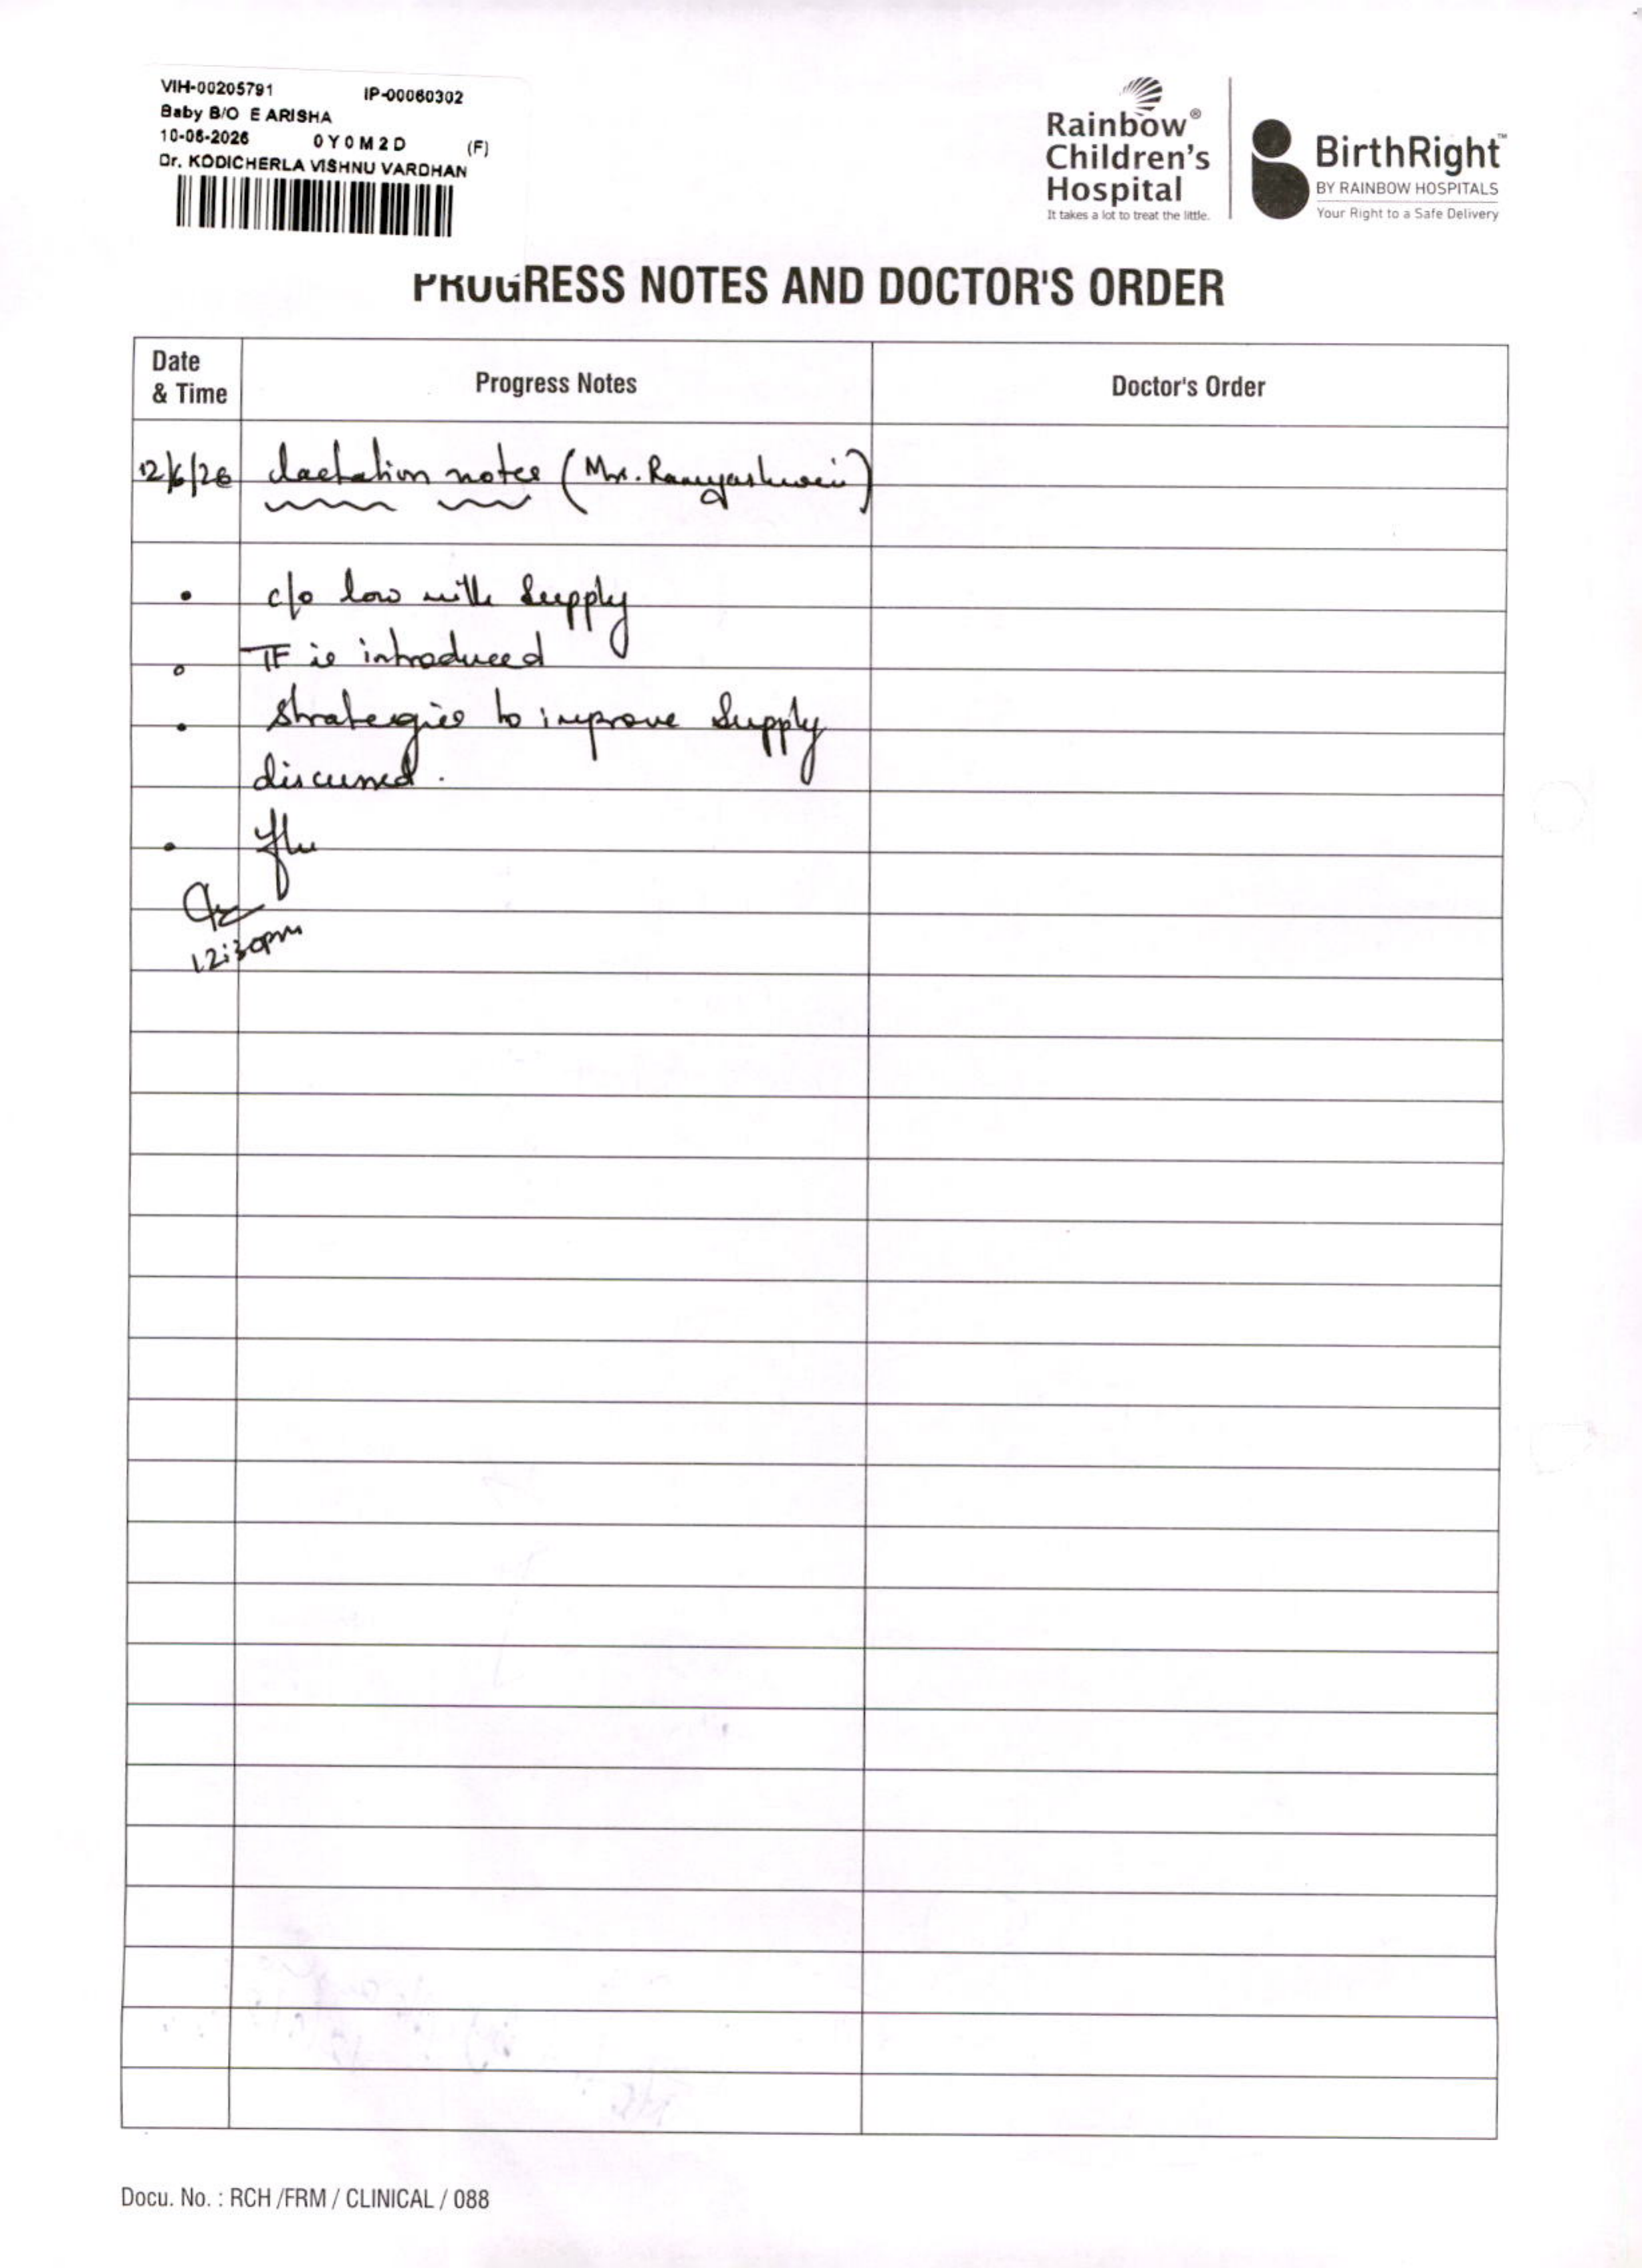 VIH-00205791 IP-00060302
Baby B/O E ARISHA
10-06-2026 0Y0M2D (F)
Dr. KODICHERLA VISHNU VARDHAN
Rainbow®
Children's
Hospital
It takes a lot to treat the little.
BirthRight™
BY RAINBOW HOSPITALS
Your Right to a Safe Delivery
PROGRESS NOTES AND DOCTOR'S ORDER
Date
& Time
Progress Notes
Doctor's Order
12/6/26 Lactation notes (Mrs.
• c/o low milk supply
• TF is introduced
• Strategies to improve supply
discussed.
•
12:30pm
Docu. No. : RCH /FRM / CLINICAL / 088